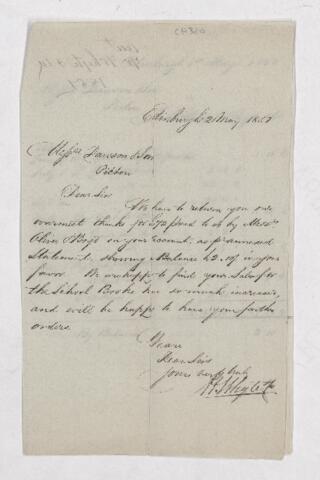 CH320
Edinburgh 2 May 1851
Messrs Dawson & Son
Pictou
Dear Sirs
We have to return you our
warmest thanks for £72 paid to us by Messrs
Oliver & Boyd on your account, as p annexed
Statement, showing Balance £2.10/ in your
favor. We are happy to find your Sales for
the School Books has so much increased,
and will be happy to have your further
orders.
We are
Dear Sirs
Yours very truly